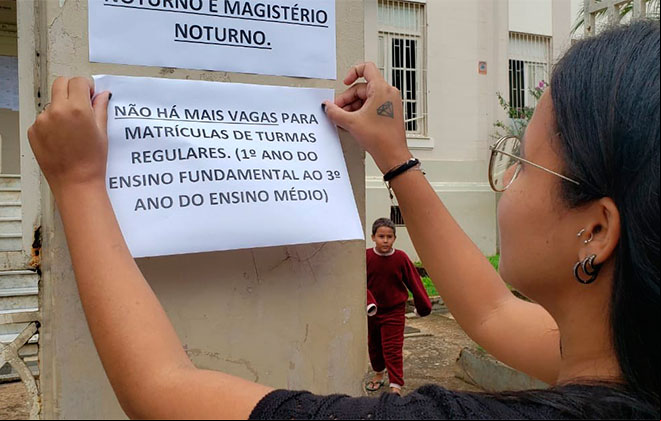 NOTURNO E MAGISTÉRIO
NOTURNO.
NÃO HÁ MAIS VAGAS PARA
MATRÍCULAS DE TURMAS
REGULARES. (1º ANO DO
ENSINO FUNDAMENTAL AO 3º
ANO DO ENSINO MÉDIO)